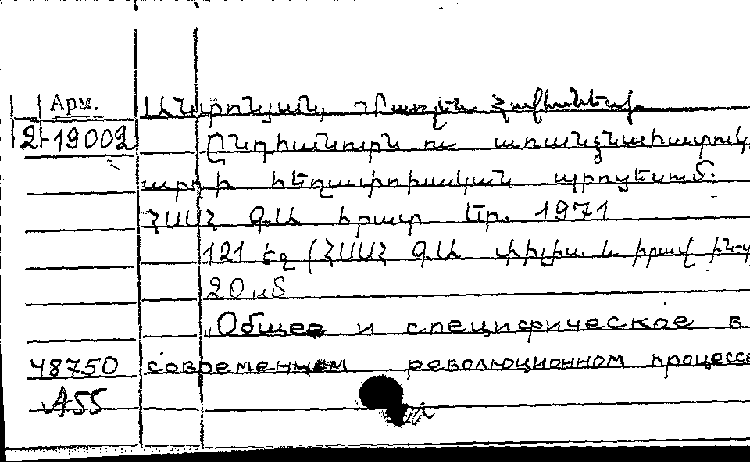 Арм.
2-19002
Ընդհանուրն ու առանձնահատուկը
արդի հեղափոխական պրոցեսում:
ՀՍՍՀ ԳԱ հրատ Եր. 1971
121 էջ (ՀՍՍՀ ԳԱ փիլիս. և իրավ ին-տ
20 սմ
"Общее и специфическое в
48750 современном революционном процессе
А55